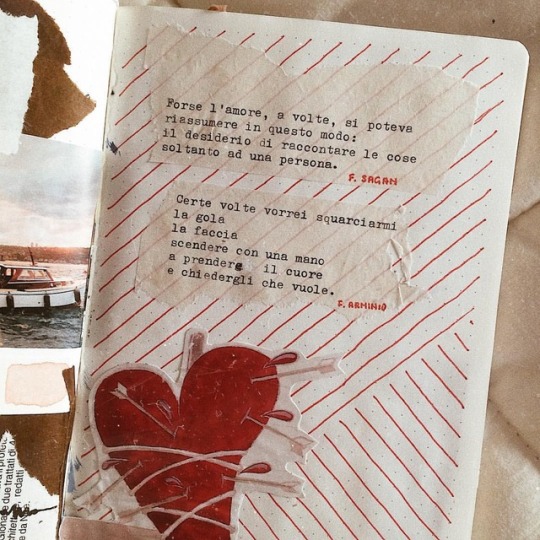 Forse l'amore, a volte, si poteva
riassumere in questo modo:
il desiderio di raccontare le cose
soltanto ad una persona.
F. SAGAN
Certe volte vorrei squarciarmi
la gola
la faccia
scendere con una mano
a prendere il cuore
e chiedergli che vuole.
F. ARMINIO